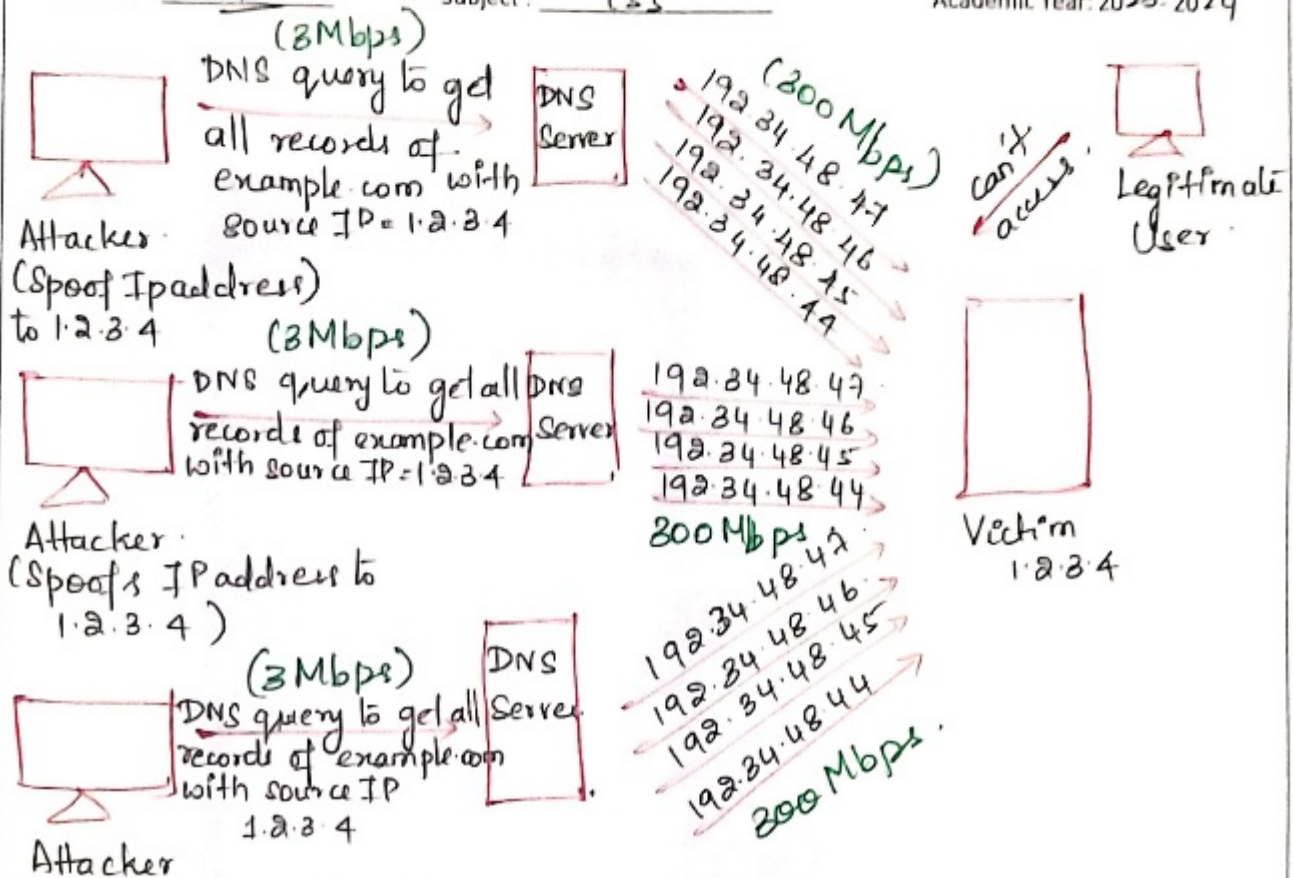 Subject :
Academic Year: 2023-2024
(3Mbps)
DNS query to get
all records of
example.com with
source IP = 1.2.3.4
DNS
Server
(300 Mbps)
192.34.48.47
192.34.48.46
192.34.48.45
192.34.48.44
can't
access.
Legitimate
User.
Attacker.
(Spoof Ipaddress)
to 1.2.3.4
(3Mbps)
DNS query to get all
records of example.com
with source IP = 1.2.3.4
DNS
Server
192.34.48.47
192.34.48.46
192.34.48.45
192.34.48.44
300 Mbps
Victim
1.2.3.4
Attacker.
(Spoofs IP address to
1.2.3.4)
(3Mbps)
DNS query to get all
records of example.com
with source IP
1.2.3.4
DNS
Server
192.34.48.47
192.34.48.46
192.34.48.45
192.34.48.44
300 Mbps.
Attacker